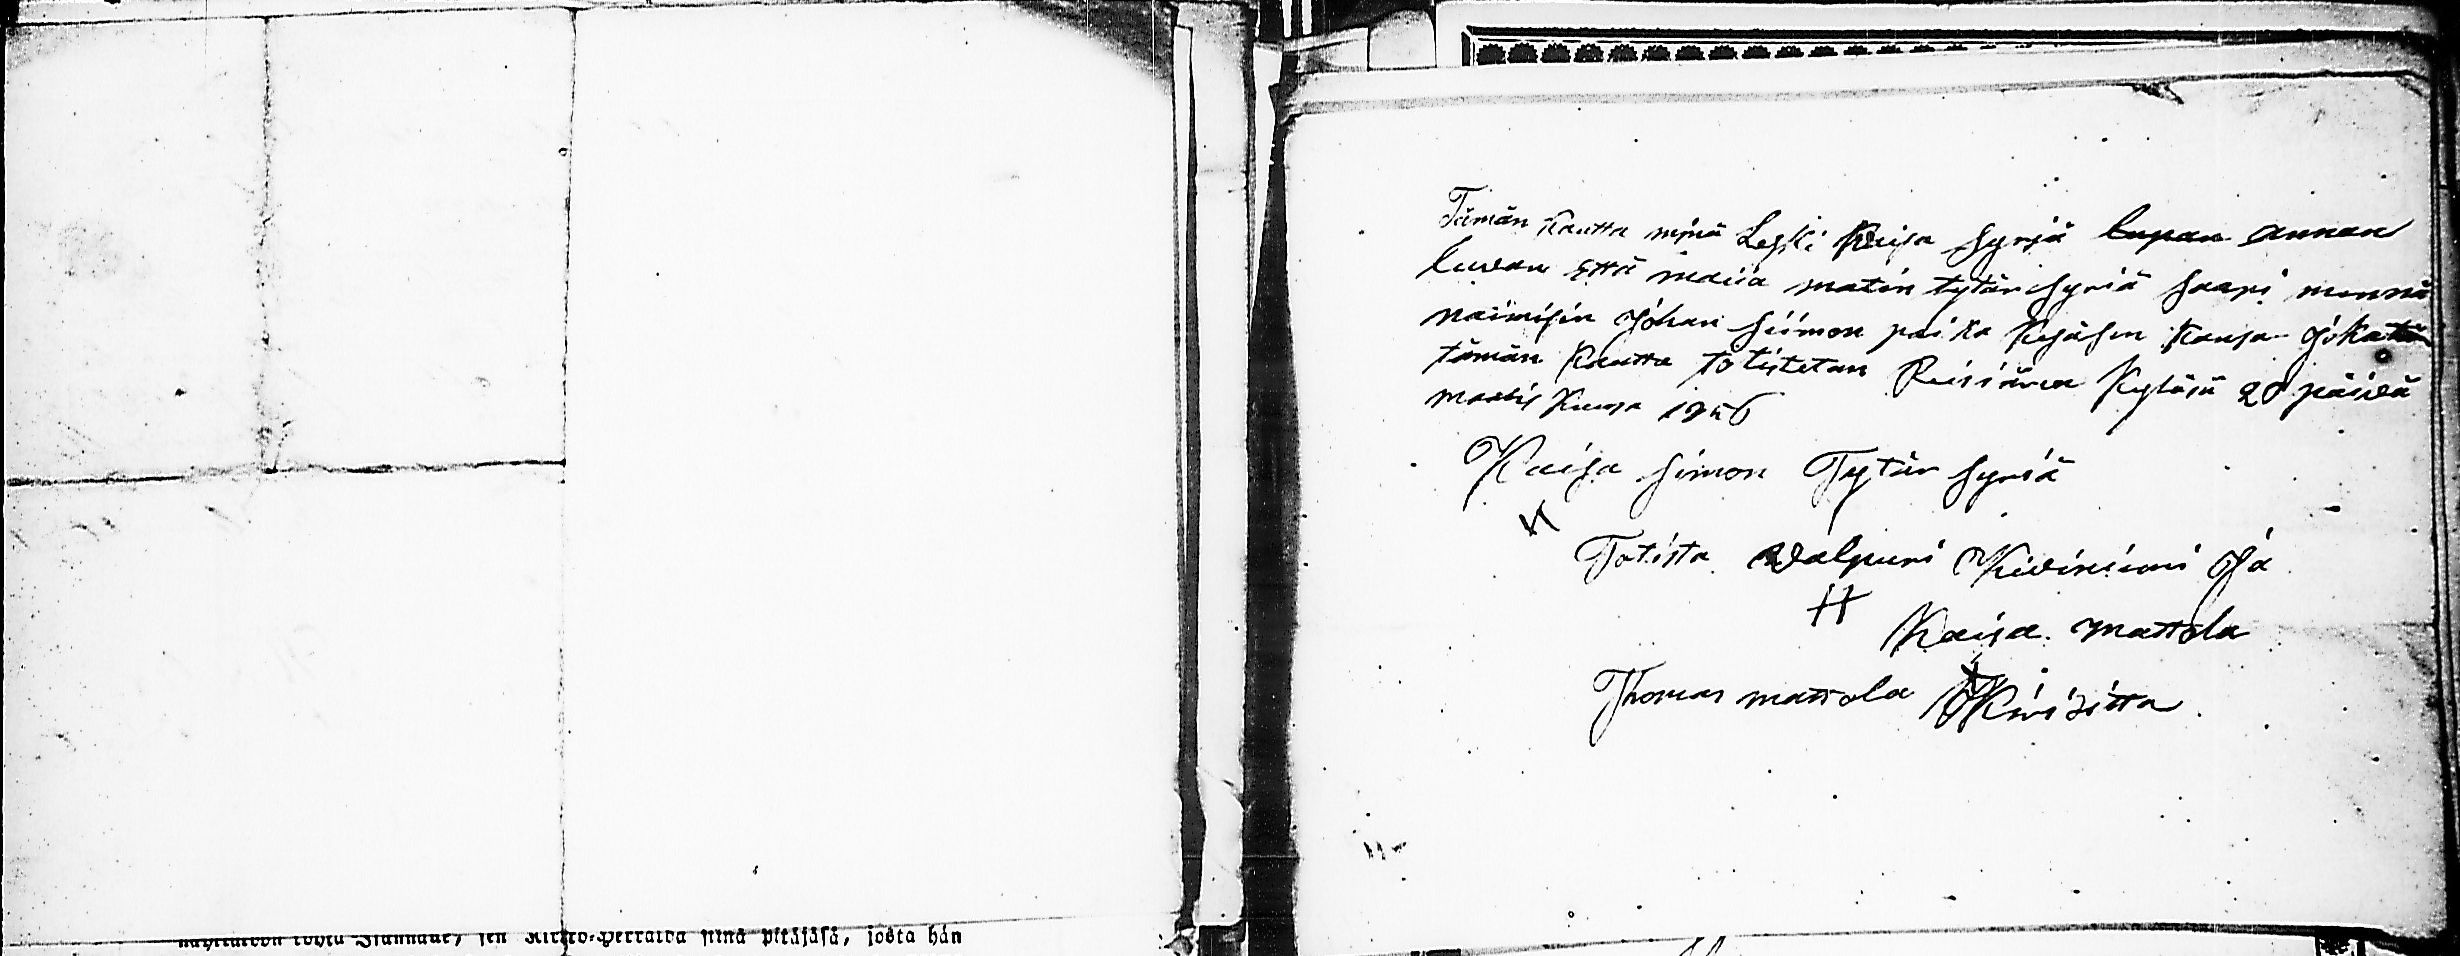 Tämän Kautta minä Leski Kaisa Syrjä lupan annan
luvan Että maiia matin tytär Syriä Saapi mennä
naimisin Johan Siimon poika Kejäsen Kansa Joka
tämän Kautta totistetan Reisiären Kyläsä 20 päivä
maalis Kuusa
Kaisa Simon Tytär Syriä
Totista Walpuri Kiviniemi Ja
Kaisa mattola
Thomas mattola Kirioitta
sen Kirkko-Herralda siinä pitäjäsä, josta hän